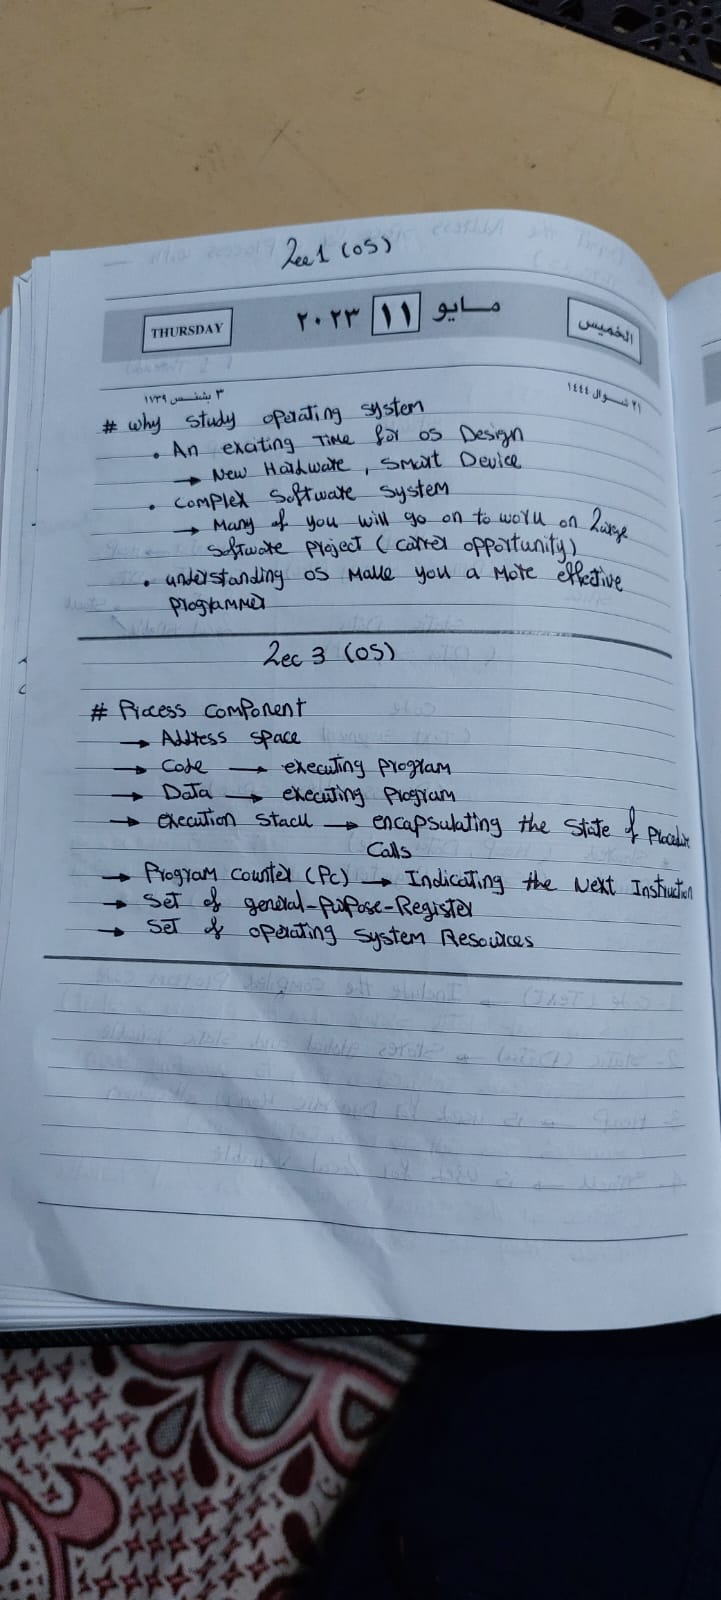 Lec 1 (OS)
THURSDAY
مايو ١١ ٢٠٢٣
الخميس
٣ بشنس ١٧٣٩
٢١ شوال ١٤٤٤
# why study operating system
• An exciting Time for OS Design
→ New Hardware, Smart Device
• Complex Software System
→ Many of you will go on to work on Large
Software project (career opportunity)
• understanding OS Make you a More effective
programmer
Lec 3 (OS)
# Process Component
→ Address space
→ Code → executing program
→ Data → executing Program
→ execution Stack → encapsulating the State of Procedure
Calls
→ Program Counter (Pc) → Indicating the Next Instruction
→ Set of general-purpose-Register
→ Set of operating System Resources